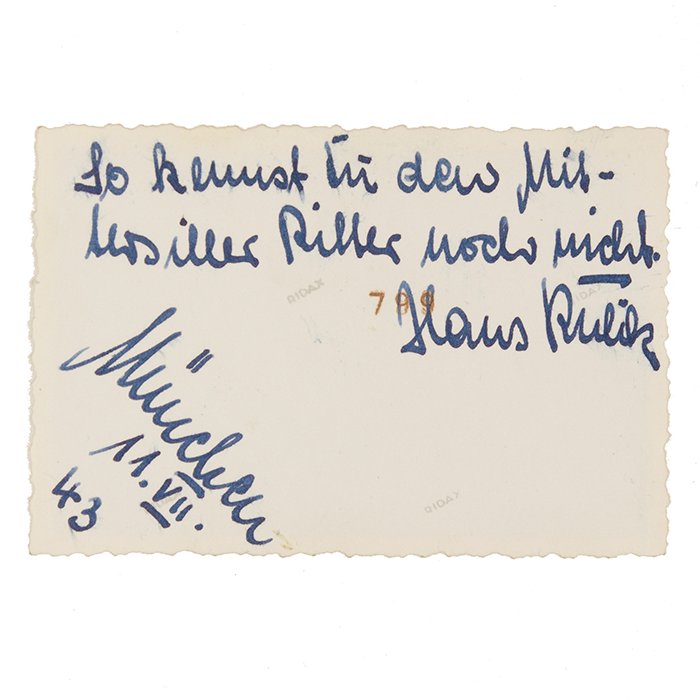 So kennst Du den Mit-
tersiller Ritter noch nicht.
RIDAX
RIDAX
799
Hans
München
11. VII.
43
RIDAX